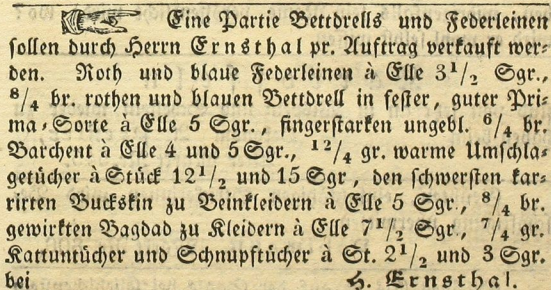 Eine Partie Bettdrells und Federleinen
sollen durch Herrn Ernsthal pr. Auftrag verkauft wer-
den. Roth und blaue Federleinen à Elle 3¹/₂ Sgr.,
⁸/₄ br. rothen und blauen Bettdrell in fester, guter Pri-
ma-Sorte à Elle 5 Sgr., fingerstarken ungebl. ⁶/₄ br.
Barchent à Elle 4 und 5 Sgr., ¹²/₄ gr. warme Umschla-
getücher à Stück 12¹/₂ und 15 Sgr, den schwersten kar-
rirten Buckskin zu Beinkleidern à Elle 5 Sgr., ⁸/₄ br.
gewirkten Bagdad zu Kleidern à Elle 7¹/₂ Sgr., ⁷/₄ gr.
Kattuntücher und Schnupftücher à St. 2¹/₂ und 3 Sgr.
bei H. Ernsthal.